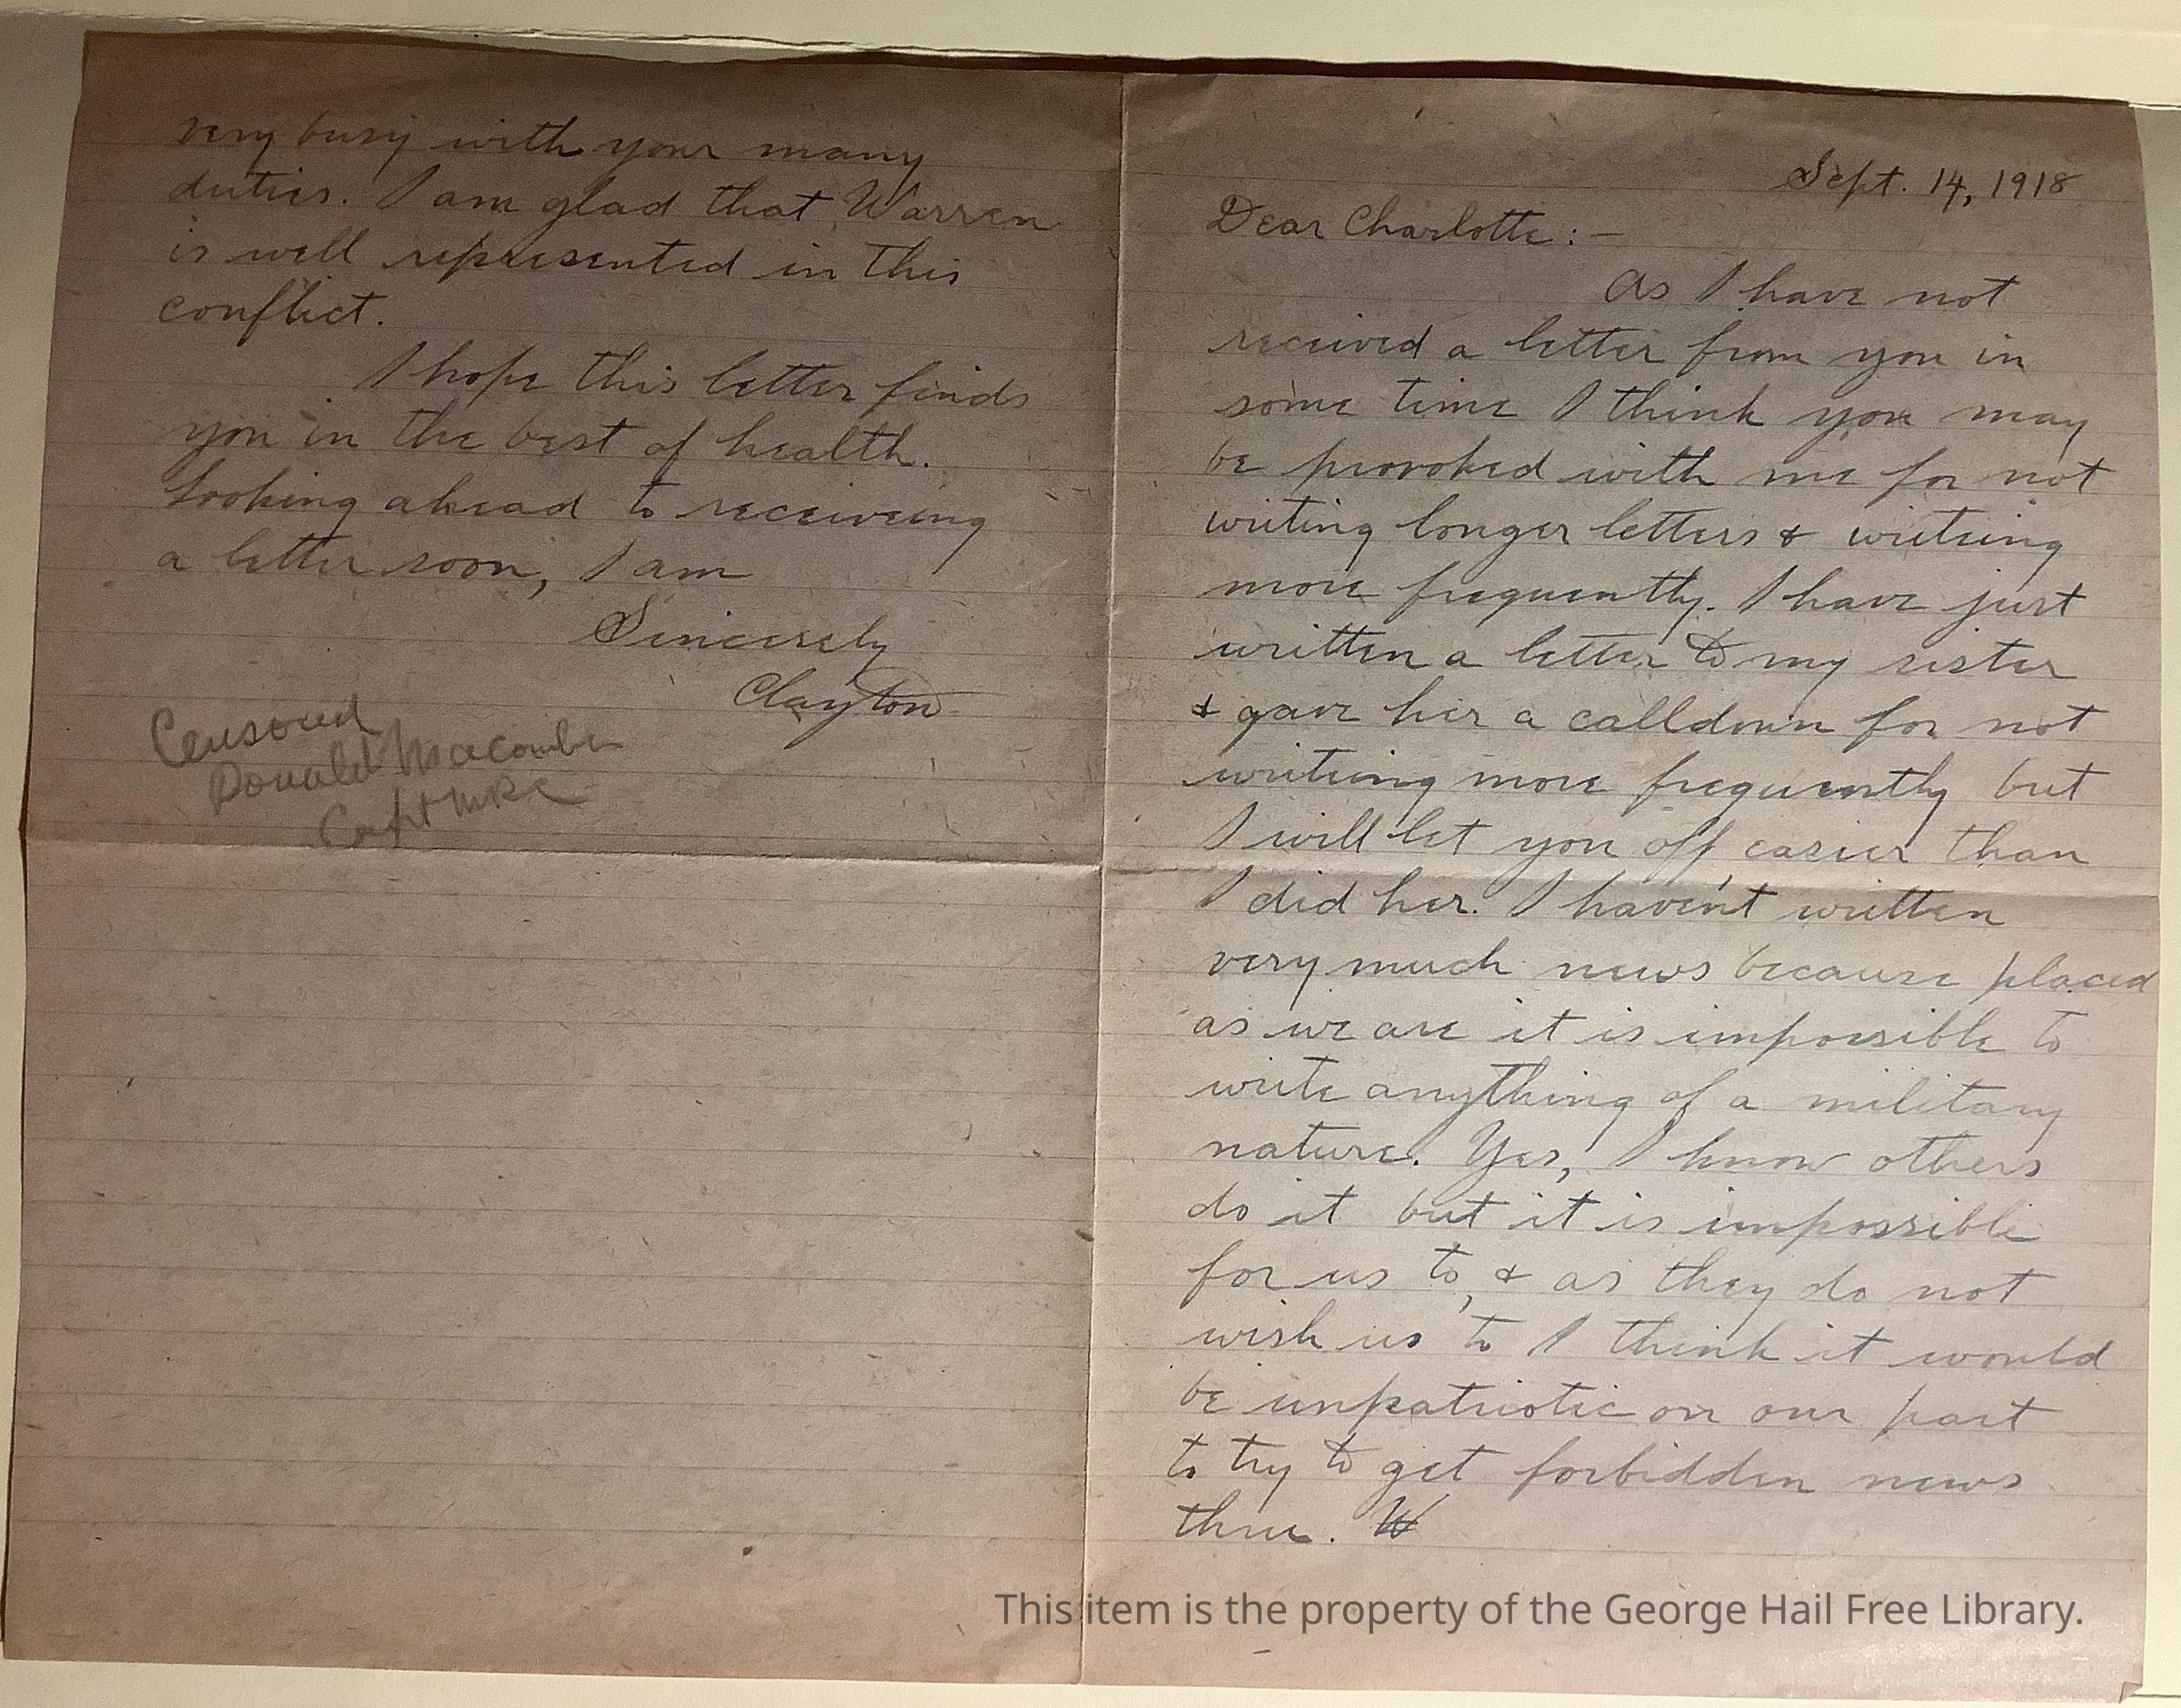 very busy with your many
duties. I am glad that Warren
is well represented in this
conflict.
I hope this letter finds
you in the best of health.
Looking ahead to receiveing
a letter soon, I am
Sincerely
Clayton
Censored
Donald Macomber
Capt MRC
Sept. 14, 1918
Dear Charlotte:-
As I have not
received a letter from you in
some time I think you may
be provoked with me for not
writing longer letters & writeing
more frequently. I have just
written a letter to my sister
& gave her a calldown for not
writeing more frequently but
I will let you off easier than
I did her. I haven't written
very much news because placed
as we are it is impossible to
write anything of a military
nature. Yes, I know others
do it but it is impossible
for us to, & as they do not
wish us to I think it would
be unpatriotic on our part
to try to get forbidden news
thru. W
This item is the property of the George Hail Free Library.